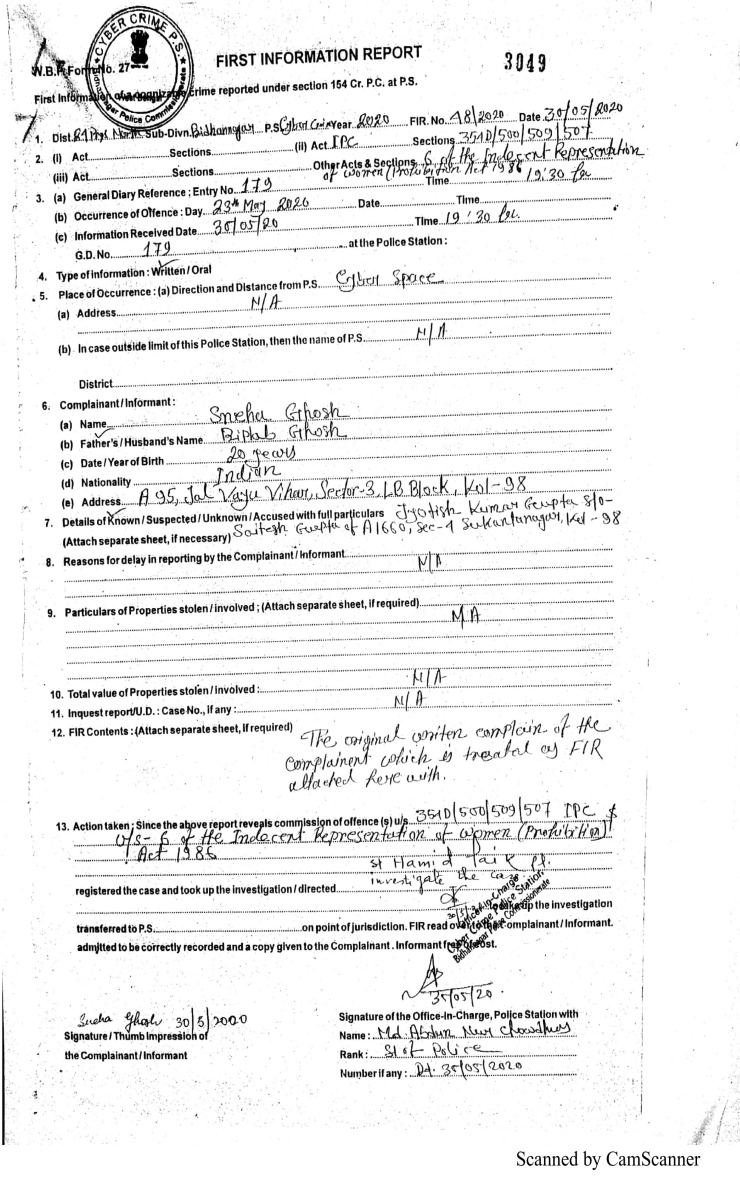 CYBER CRIME P.S.
Bidhannagar Police Commissionerate
W.B.P. Form No. 27
FIRST INFORMATION REPORT
3049
First Information of a cognizable crime reported under section 154 Cr. P.C. at P.S.
1. Dist. 24 Pgs North Sub-Divn. Bidhannagar P.S. Cyber Crime Year 2020 FIR. No. 48/2020 Date 30/05/2020
2. (I) Act Sections (II) Act IPC Sections 354D/500/509/507
(iii) Act Sections Other Acts & Sections 6 of the Indecent Representation of Women (Prohibition) Act 1986
3. (a) General Diary Reference ; Entry No. 179 Time 19:30 hrs
(b) Occurrence of Offence : Day 23th May 2020 Date Time
(c) Information Received Date 30/05/20 Time 19:30 hrs.
G.D. No. 179 at the Police Station :
4. Type of information : Written / Oral
5. Place of Occurrence : (a) Direction and Distance from P.S. Cyber Space
(a) Address N/A
(b) In case outside limit of this Police Station, then the name of P.S. N/A
District
6. Complainant / Informant :
(a) Name Sneha Ghosh
(b) Father's / Husband's Name Biplab Ghosh
(c) Date / Year of Birth 20 years
(d) Nationality Indian
(e) Address A 95, Jal Vayu Vihar, Sector-3, LB Block, Kol-98
7. Details of Known / Suspected / Unknown / Accused with full particulars Jyotish Kumar Gupta S/o-
(Attach separate sheet, if necessary) Saitesh Gupta of A1660, Sec-4 Sukantanagar, Kol-98
8. Reasons for delay in reporting by the Complainant / Informant N/A
9. Particulars of Properties stolen / involved ; (Attach separate sheet, if required)
N.A
10. Total value of Properties stolen / Involved : N/A
11. Inquest report/U.D. : Case No., if any : N/A
12. FIR Contents : (Attach separate sheet, If required) The original writen complain of the
complainent which is treated as FIR
attached here with.
13. Action taken ; Since the above report reveals commission of offence (s) u/s 354D/500/509/507 IPC &
U/s- 6 of the Indecent Representation of women (Prohibition)
Act 1986
SI Hamid
investigate the case
registered the case and took up the investigation / directed
30/5/20
Officer-in-Charge
Cyber Crime Police Station
Bidhannagar Police Commissionerate
to take up the investigation
transferred to P.S. on point of jurisdiction. FIR read over to the Complainant / Informant.
admitted to be correctly recorded and a copy given to the Complainant . Informant free of cost.
30/05/20.
Sneha Ghosh 30/5/2020
Signature / Thumb Impression of
the Complainant / Informant
Signature of the Office-In-Charge, Police Station with
Name : Md. Abdun Nur Chowdhury
Rank : SI of Police
Number if any : Dt. 30/05/2020
Scanned by CamScanner